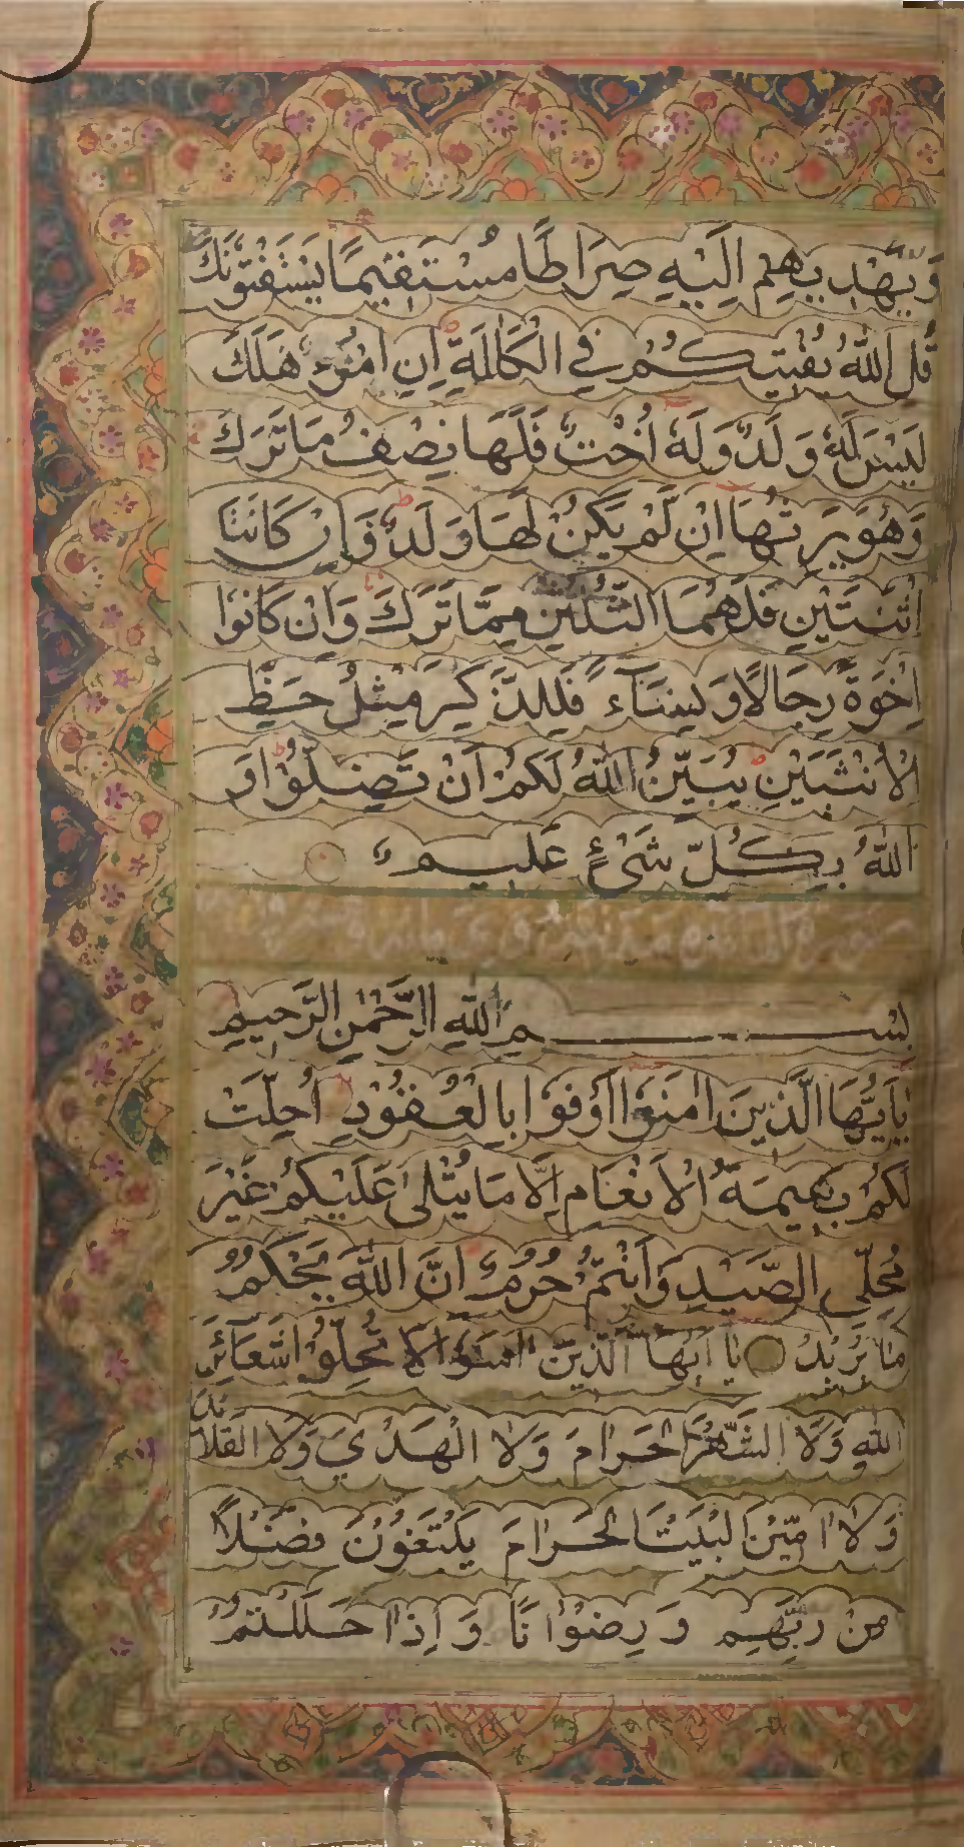 وَيَهْدِيهِمْ إِلَيْهِ صِرَاطًا مُسْتَقِيمًا يَسْتَفْتُونَكَ
قُلِ اللهُ يُفْتِيكُمْ فِي الْكَلَالَةِ إِنِ امْرُؤٌ هَلَكَ
لَيْسَ لَهُ وَلَدٌ وَلَهُ أُخْتٌ فَلَهَا نِصْفُ مَا تَرَكَ
وَهُوَ يَرِثُهَا إِنْ لَمْ يَكُنْ لَهَا وَلَدٌ فَإِنْ كَانَتَا
اثْنَتَيْنِ فَلَهُمَا الثُّلُثَيْنِ مِمَّا تَرَكَ وَإِنْ كَانُوا
إِخْوَةً رِجَالًا وَنِسَاءً فَلِلذَّكَرِ مِثْلُ حَظِّ
الْأُنْثَيَيْنِ يُبَيِّنُ اللهُ لَكُمْ أَنْ تَضِلُّوا وَ
اللهُ بِكُلِّ شَيْءٍ عَلِيمٌ
بِسْمِ اللهِ الرَّحْمٰنِ الرَّحِيمِ
يَا أَيُّهَا الَّذِينَ اٰمَنُوا أَوْفُوا بِالْعُقُودِ أُحِلَّتْ
لَكُمْ بَهِيمَةُ الْأَنْعَامِ إِلَّا مَا يُتْلَى عَلَيْكُمْ غَيْرَ
مُحِلِّي الصَّيْدِ وَأَنْتُمْ حُرُمٌ إِنَّ اللهَ يَحْكُمُ
مَا يُرِيدُ يَا أَيُّهَا الَّذِينَ اٰمَنُوا لَا تُحِلُّوا شَعَائِرَ
اللهِ وَلَا الشَّهْرَ الْحَرَامَ وَلَا الْهَدْيَ وَلَا الْقَلَائِدَ
وَلَا اٰمِّينَ الْبَيْتَ الْحَرَامَ يَبْتَغُونَ فَضْلًا
مِنْ رَبِّهِمْ وَرِضْوَانًا وَإِذَا حَلَلْتُمْ